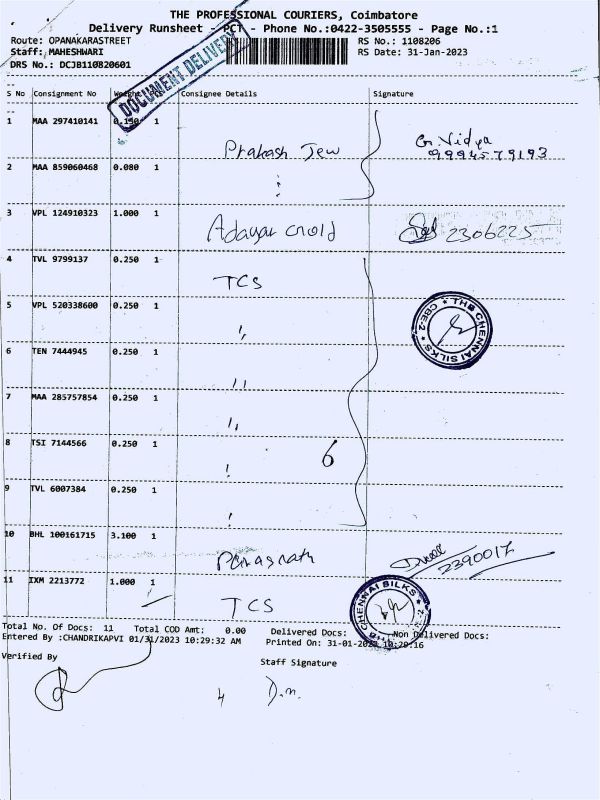 THE PROFESSIONAL COURIERS, Coimbatore
Delivery Runsheet - PCT - Phone No.:0422-3505555 - Page No.:1
Route: OPANAKARASTREET RS No.: 1108206
Staff: MAHESHWARI RS Date: 31-Jan-2023
DRS No.: DCJB110820601
DOCUMENT DELIVERY
S No Consignment No Weight Consignee Details Signature
1 MAA 297410141 0.150 1
Prakash Jew G. Vidya
9994579193
2 MAA 859060468 0.080 1
3 VPL 124910323 1.000 1
Adayar 2306225
4 TVL 9799137 0.250 1
TCS
5 VPL 520338600 0.250 1
"
THE CHENNAI SILKS * CBE-2 *
6 TEN 7444945 0.250 1
"
7 MAA 285757854 0.250 1
"
8 TSI 7144566 0.250 1
6
9 TVL 6007384 0.250 1
10 BHL 100161715 3.100 1
Parasnath 2390017
11 IXM 2213772 1.000 1
TCS
CHENNAI SILKS
Total No. Of Docs: 11 Total COD Amt: 0.00 Delivered Docs: Non Delivered Docs:
Entered By :CHANDRIKAPVI 01/31/2023 10:29:32 AM Printed On: 31-01-2023 10:29:16
Verified By Staff Signature